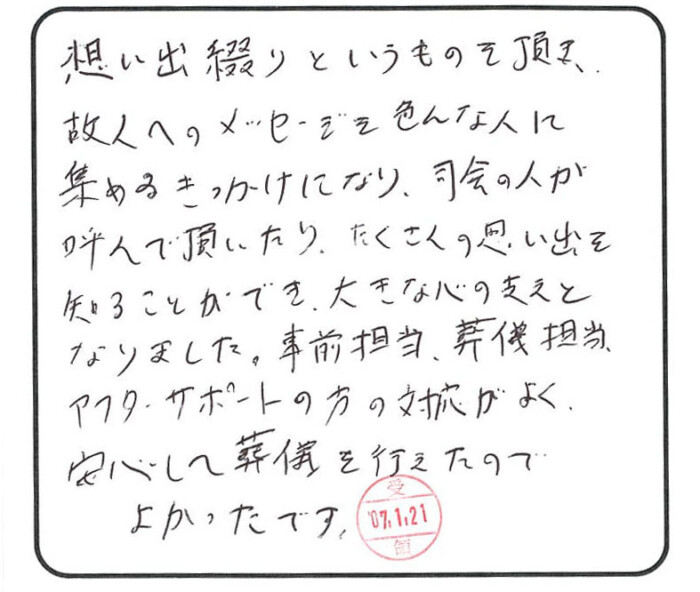 想い出綴りというものを頂き、
故人へのメッセージを色んな人に
集めるきっかけになり、司会の人が
呼んで頂いたり、たくさんの思い出を
知ることができ、大きな心の支えと
なりました。事前担当、葬儀担当、
アフターサポートの方の対応がよく、
安心して葬儀を行えたので
よかったです。
受
'07.1.21
領